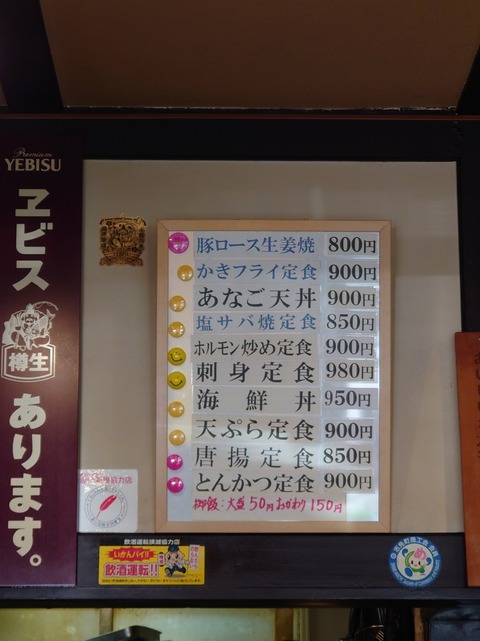 Premium
YEBISU
ヱビス
樽生
あります。
豚ロース生姜焼 800円
かきフライ定食 900円
あなご天丼 900円
塩サバ焼定食 850円
ホルモン炒め定食 900円
刺身定食 980円
海鮮丼 950円
天ぷら定食 900円
唐揚定食 850円
とんかつ定食 900円
御飯:大盛50円おかわり150円
飲酒運転撲滅協力店
いかんバイ!!
飲酒運転!!